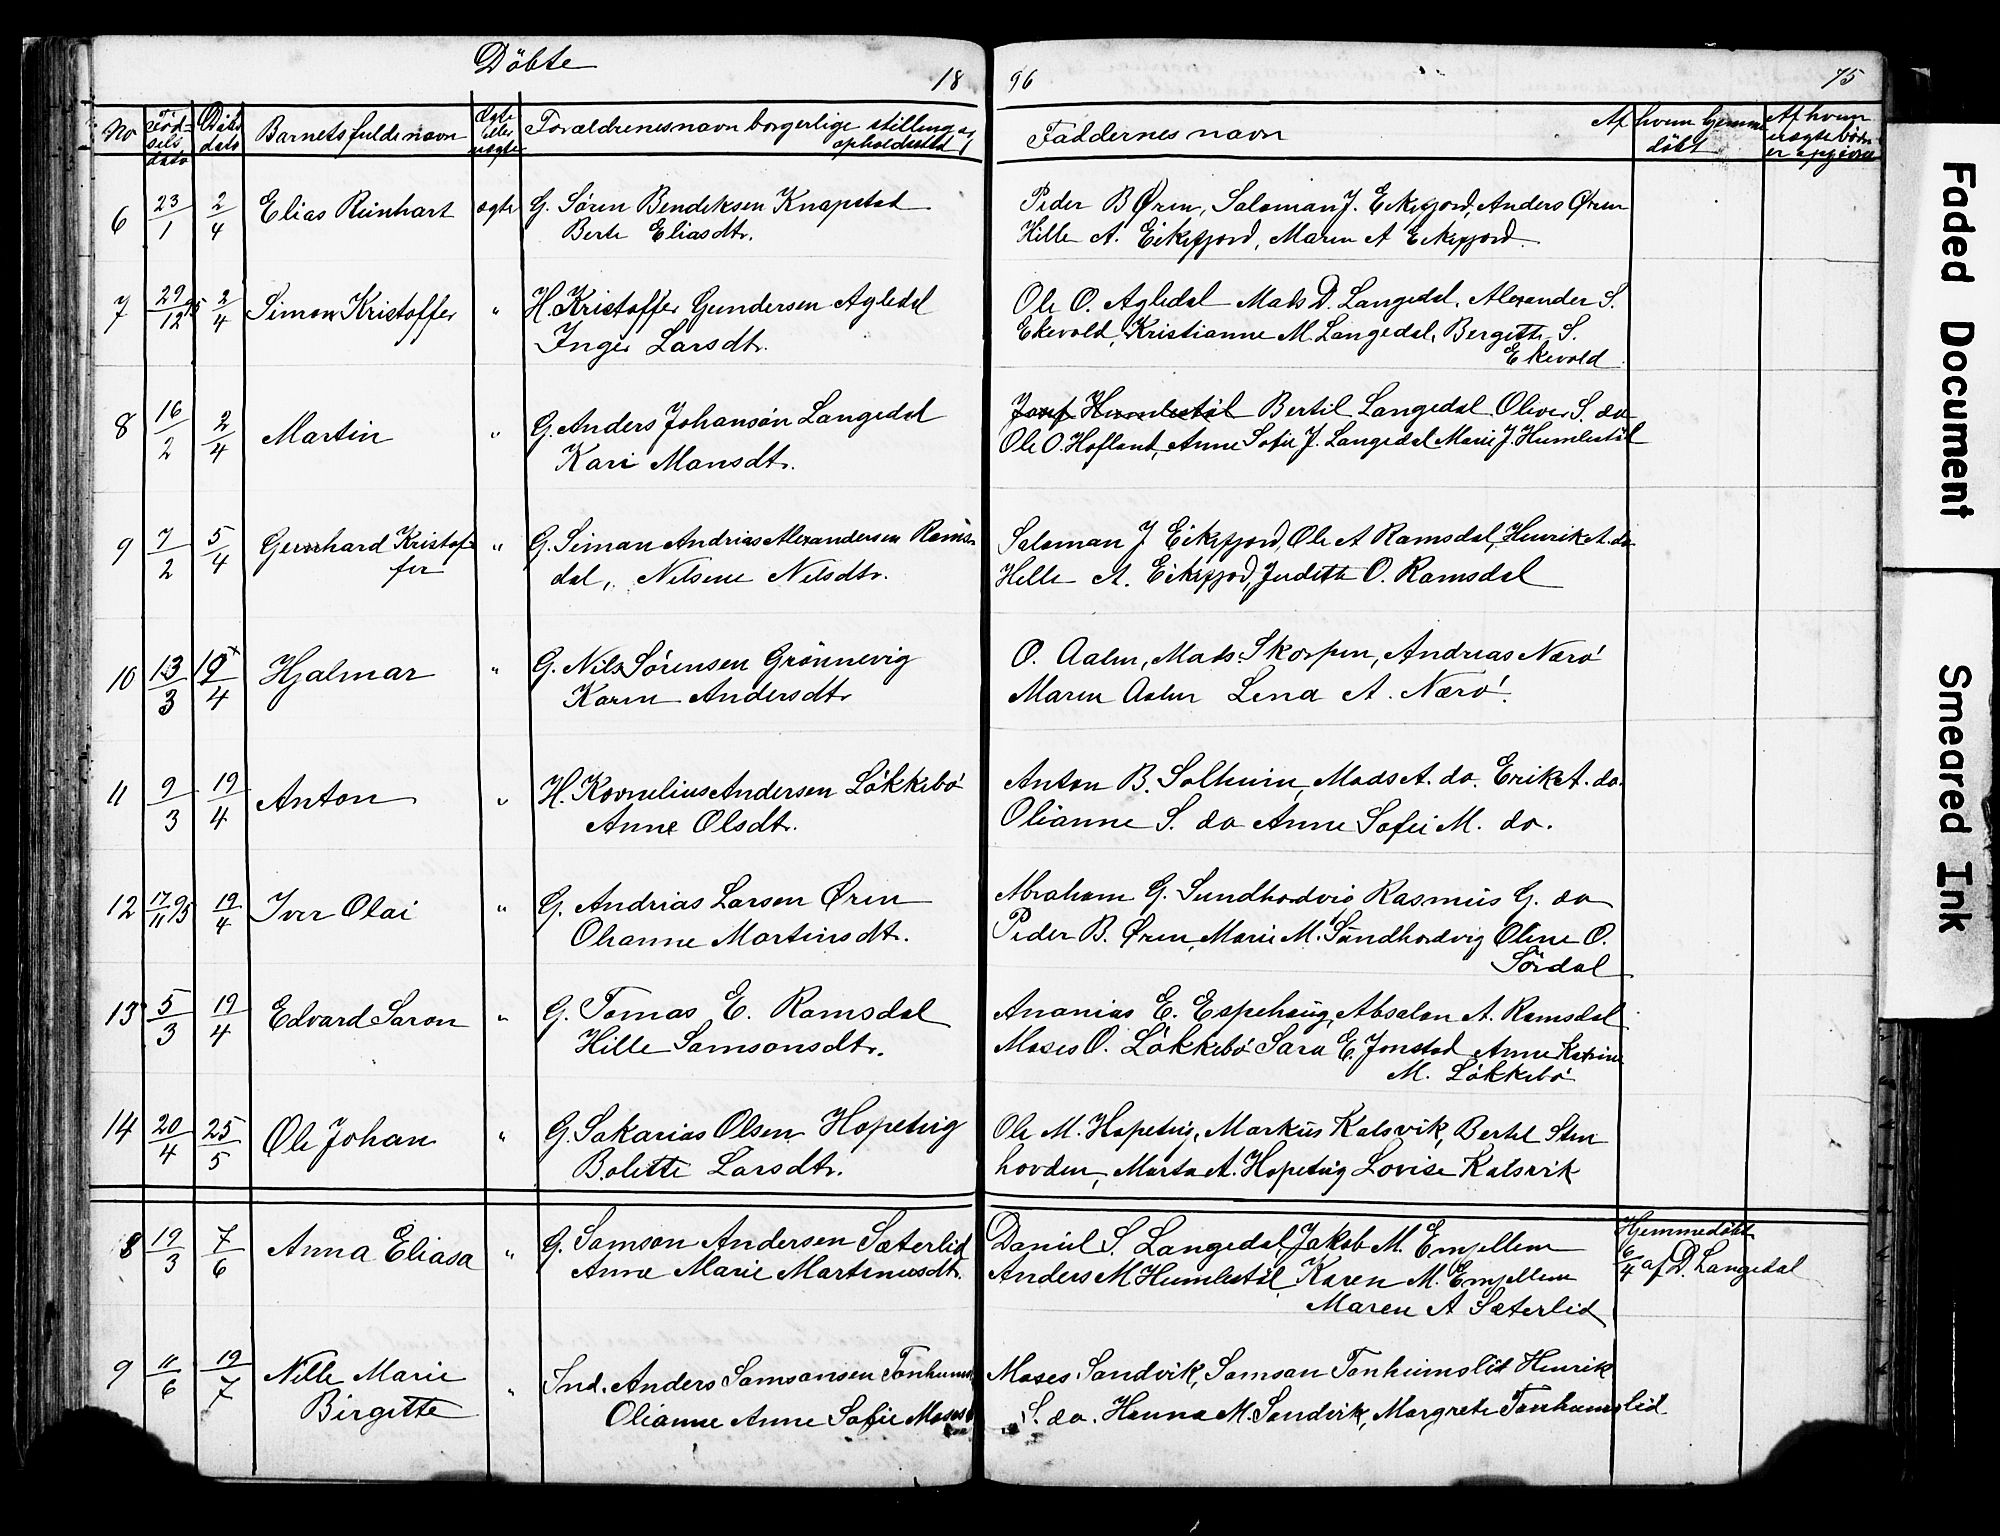 Döbte
18 96 75
No Födselsdato Döbtdato Barnets fulde navn Ægte eller uægte Forældrenes navn borgerlige stilling og opholdssted Faddernes navn Af hvem hjemmedöbt Af hvem uægte börn er opgivne
6 23/1 2/4 Elias Reinhart ægte G. Sören Bendiksen Knapstad Peder B Øren, Salaman J. Eikefjord, Anders Øren
Berte Eliasdtr. Hille A. Eikefjord, Maren A Eikefjord
7 29/12 95 2/4 Simon Kristoffer " H. Kristoffer Gundersen Agledal Ole O. Agledal Mads D. Langedal, Alexander S.
Inger Larsdtr. Ekevold, Kristianne M. Langedal, Bergitte S.
Ekevold
8 16/2 2/4 Martin " G. Anders Johanson Langedal Josef Humlestöl Bertil Langedal Oliver S. do
Kari Monsdtr. Ole O. Hofland, Anne Sofie J. Langedal Marie J Humlestöl
9 7/2 5/4 Gerhard Kristof- " G. Simon Andrias Alexandersen Rams- Salaman J Eikefjord, Ole A Ramsdal, Henrik A. do
fer dal, Nilsine Nilsdtr. Hille A. Eikefjord, Judith O. Ramsdal
10 13/3 19/4 Hjalmar " G. Nils Sörensen Grönnevig O. Aalen, Mads Skorpen, Andreas Nærö
Karen Andersdtr Maren Aalen Lena A. Nærö.
11 9/3 19/4 Anton " H. Kornelius Andersen Lökkebö Anton B. Solheim, Mads A. do. Erik A. do.
Anne Olsdtr. Olianne S. do Anne Sofie M. do.
12 17/11 95 19/4 Iver Olai " G. Andrias Larsen Øren Abraham G. Sundhordvig Rasmus G. do
Olianne Martinsdtr. Peder B. Øren, Marie M. Sundhordvig Oline O.
Sördal
13 5/3 19/4 Edvard Saron " G. Tomas E. Ramsdal Ananias E. Espehaug, Absalon A. Ramsdal
Hille Samsonsdtr. Moses O. Lökkebö Sara E. Jonstad Anne Katrine
M. Lökkebö
14 20/4 25/5 Ole Johan " G. Sakarias Olsen Hopeteig Ole M. Hopeteig, Markus Kalsvik, Bertel Sten
Bolette Larsdtr. hovden, Marta A. Hopeteig Lovise Kalsvik
8 19/3 7/6 Anna Eliasa " G. Samson Andersen Sæterlid Daniel S. Langedal, Jakob M. Empellem Hjemmedöbt
Anne Marie Martinusdtr. Anders M Humlestöl Karen M. Empellem 6/4 af D. Langedal
Maren A Sæterlid
9 11/6 19/7 Nille Marie " Ind. Anders Samsonsen Tonheims Moses Sandvik, Samson Tonheimslid Henrik
Birgitte Olianne Anne Sofie Moses S. do. Hanna M. Sandvik, Margrete Tonheimslid
Faded Document
Smeared Ink